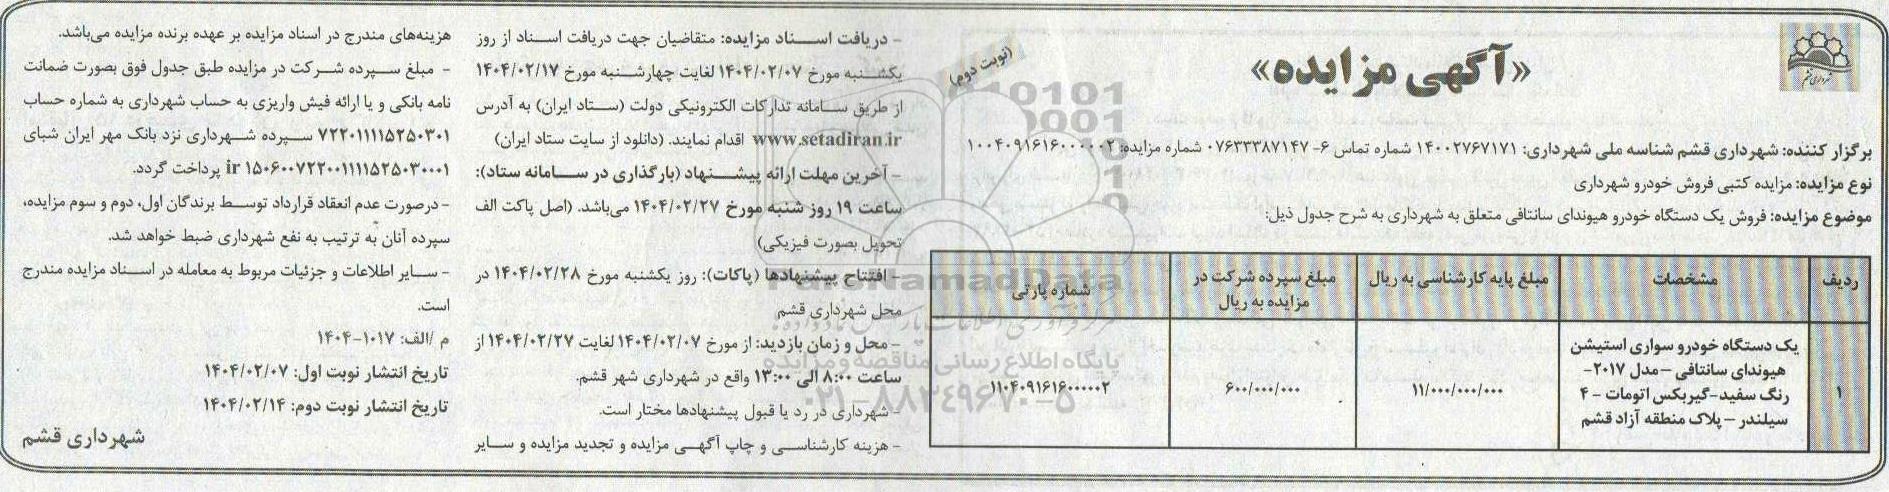 شهرداری قشم
«آگهی مزایده»
(نوبت دوم)
برگزار کننده: شهرداری قشم شناسه ملی شهرداری: ۱۴۰۰۲۷۶۷۱۷۱ شماره تماس ۶- ۰۷۶۳۳۳۸۷۱۴۷ شماره مزایده: ۱۰۰۴۰۹۱۶۱۶۰۰۰۰۰۲
نوع مزایده: مزایده کتبی فروش خودرو شهرداری
موضوع مزایده: فروش یک دستگاه خودرو هیوندای سانتافی متعلق به شهرداری به شرح جدول ذیل:
ردیف مشخصات مبلغ پایه کارشناسی به ریال مبلغ سپرده شرکت در مزایده به ریال شماره پارتی
۱ یک دستگاه خودرو سواری استیشن ۱۱/۰۰۰/۰۰۰/۰۰۰ ۶۰۰/۰۰۰/۰۰۰ ۱۱۰۴۰۹۱۶۱۶۰۰۰۰۰۲
هیوندای سانتافی –مدل ۲۰۱۷-
رنگ سفید-گیربکس اتومات - ۴
سیلندر – پلاک منطقه آزاد قشم
- دریافت اسناد مزایده: متقاضیان جهت دریافت اسناد از روز
یکشنبه مورخ ۱۴۰۴/۰۲/۰۷ لغایت چهارشنبه مورخ ۱۴۰۴/۰۲/۱۷
از طریق سامانه تدارکات الکترونیکی دولت (ستاد ایران) به آدرس
www.setadiran.ir اقدام نمایند. (دانلود از سایت ستاد ایران)
- آخرین مهلت ارائه پیشنهاد (بارگذاری در سامانه ستاد):
ساعت ۱۹ روز شنبه مورخ ۱۴۰۴/۰۲/۲۷ می‌باشد. (اصل پاکت الف
تحویل بصورت فیزیکی)
- افتتاح پیشنهادها (پاکات): روز یکشنبه مورخ ۱۴۰۴/۰۲/۲۸ در
محل شهرداری قشم
- محل و زمان بازدید: از مورخ ۱۴۰۴/۰۲/۰۷ لغایت ۱۴۰۴/۰۲/۲۷ از
ساعت ۸:۰۰ الی ۱۳:۰۰ واقع در شهرداری شهر قشم.
- شهرداری در رد یا قبول پیشنهادها مختار است.
- هزینه کارشناسی و چاپ آگهی مزایده و تجدید مزایده و سایر
هزینه‌های مندرج در اسناد مزایده بر عهده برنده مزایده می‌باشد.
- مبلغ سپرده شرکت در مزایده طبق جدول فوق بصورت ضمانت
نامه بانکی و یا ارائه فیش واریزی به حساب شهرداری به شماره حساب
۷۲۲۰۱۱۱۱۵۲۵۰۳۰۱ سپرده شهرداری نزد بانک مهر ایران شبای
ir ۱۵۰۶۰۰۷۲۲۰۰۱۱۱۱۵۲۵۰۳۰۰۰۱ پرداخت گردد.
- درصورت عدم انعقاد قرارداد توسط برندگان اول، دوم و سوم مزایده،
سپرده آنان به ترتیب به نفع شهرداری ضبط خواهد شد.
- سایر اطلاعات و جزئیات مربوط به معامله در اسناد مزایده مندرج
است.
م /الف: ۱۰۱۷-۱۴۰۴
تاریخ انتشار نوبت اول: ۱۴۰۴/۰۲/۰۷
تاریخ انتشار نوبت دوم: ۱۴۰۴/۰۲/۱۴
شهرداری قشم
ParsNamadData
پایگاه اطلاع رسانی مناقصه و مزایده
۰۲۱-۸۸۳۴۹۶۷۰-۵